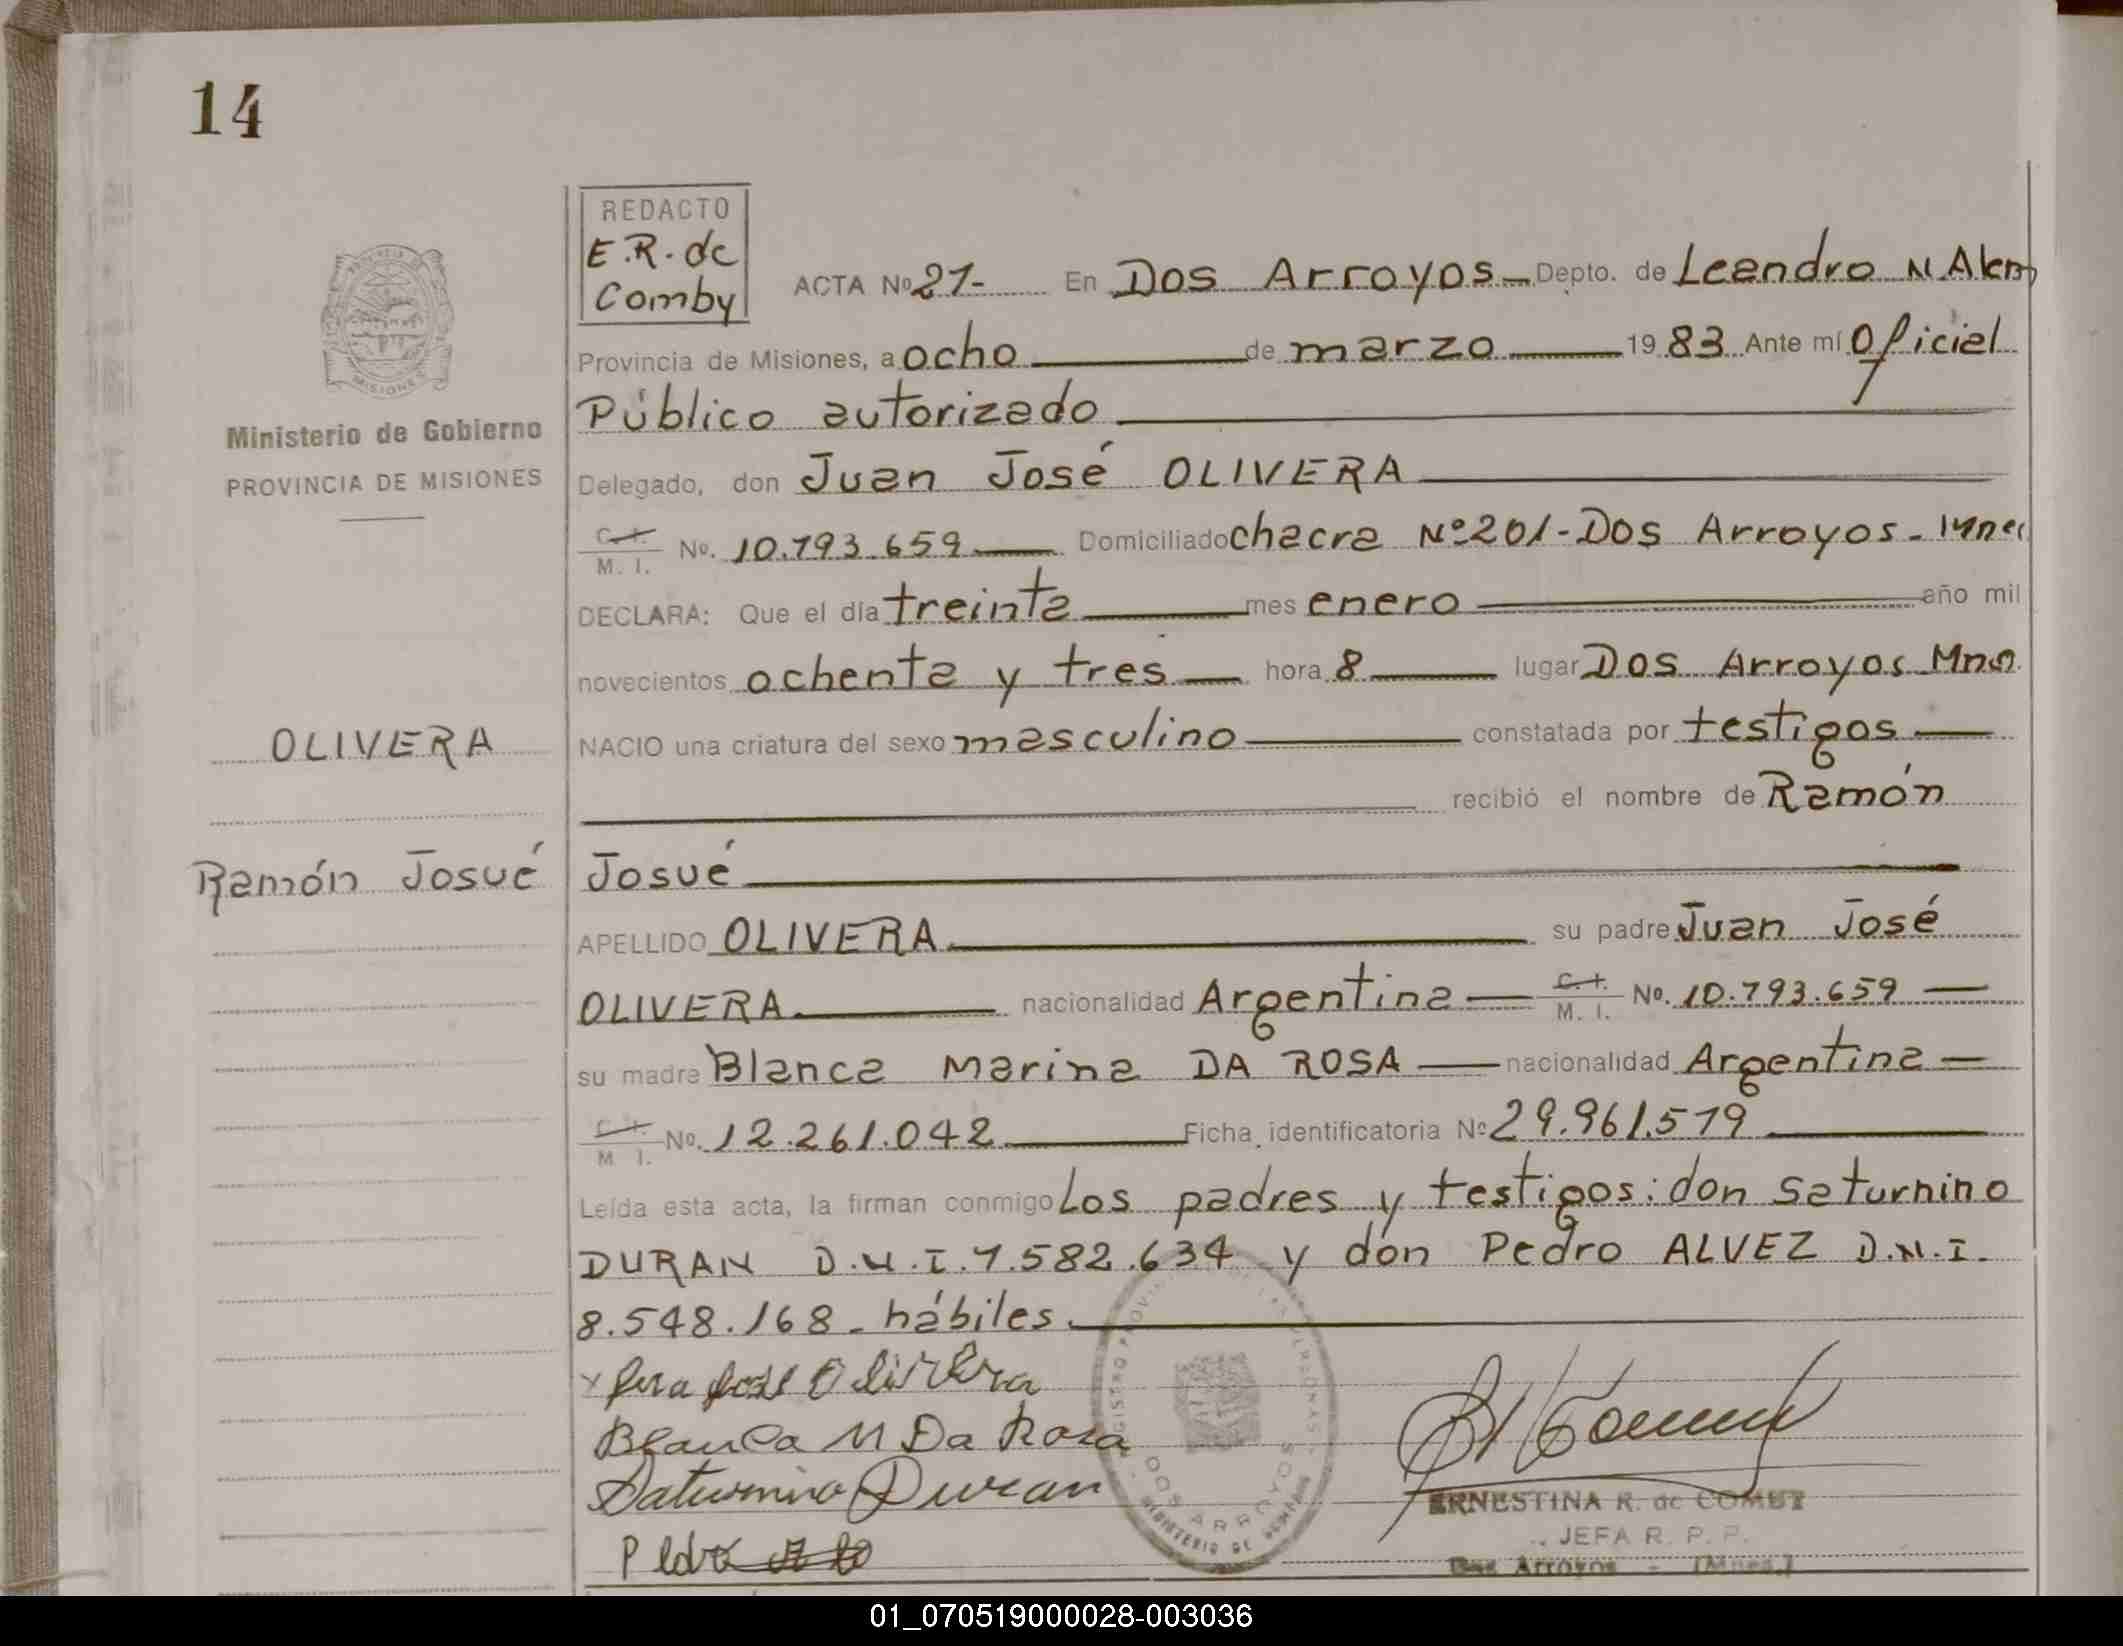 14
REDACTO
E.R. de
Comby
ACTA Nº 21- En Dos Arroyos Depto. de Leandro N Alem
Provincia de Misiones, a ocho de marzo 1983 Ante mí Oficial
Público autorizado
MISIONES
Ministerio de Gobierno
PROVINCIA DE MISIONES
Delegado, don Juan José OLIVERA
C. I.
M. I. No. 10.793.659 Domiciliado chacra Nº 201-Dos Arroyos-
DECLARA: Que el día treinta mes enero año mil
novecientos ochenta y tres hora 8 lugar Dos Arroyos Mnes.
OLIVERA
NACIO una criatura del sexo masculino constatada por testigos
recibió el nombre de Ramón
Ramón Josué
Josué
APELLIDO OLIVERA su padre Juan José
OLIVERA nacionalidad Argentina C. I. M. I. No. 10.793.659
su madre Blanca Marina DA ROSA nacionalidad Argentina
C. I.
M. I. No. 12.261.042 Ficha identificatoria Nº 29.961.579
Leída esta acta, la firman conmigo Los padres y testigos: don Saturnino
DURAN D.N.I. 7.582.634 y don Pedro ALVEZ D.N.I.
8.548.168 - hábiles.
José Olivera
Blanca M Da Rosa
Saturnino Duran
Pedro
DOS ARROYOS
MINISTERIO DE GOBIERNO
ERNESTINA R. de COMBY
JEFA R. P. P.
Dos Arroyos - (Mnes.)
01_070519000028-003036